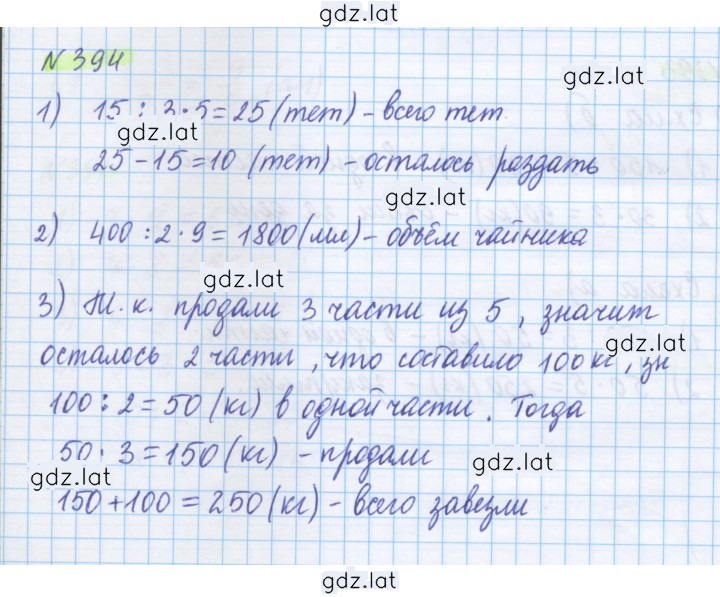 gdz.lat
N 394
gdz.lat
1) 15 : 3·5=25(тет)-всего тет.
gdz.lat
25-15=10 (тет) -осталось раздать
gdz.lat
2) 400:2·9=1800(мл)-объём чайника
gdz.lat
3) Т.к. продали 3 части из 5, значит
gdz.lat
осталось 2 части, что составило 100кг, зн
100:2=50(кг) в одной части. Тогда
50·3=150(кг) -продали
gdz.lat
gdz.lat
150+100=250(кг)-всего завезли
gdz.lat